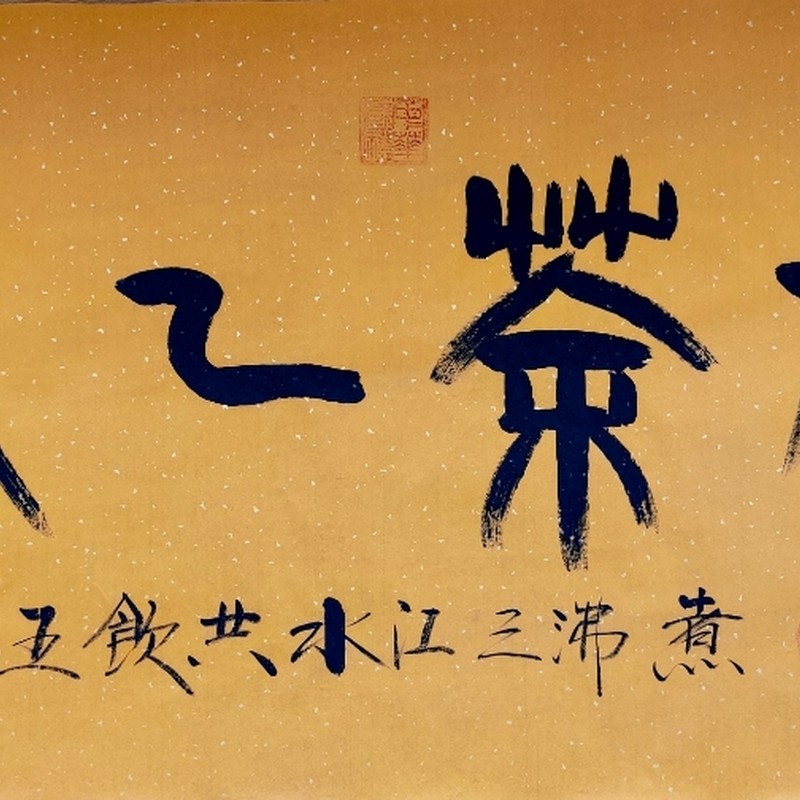 茶之
煮沸三江水共飲五